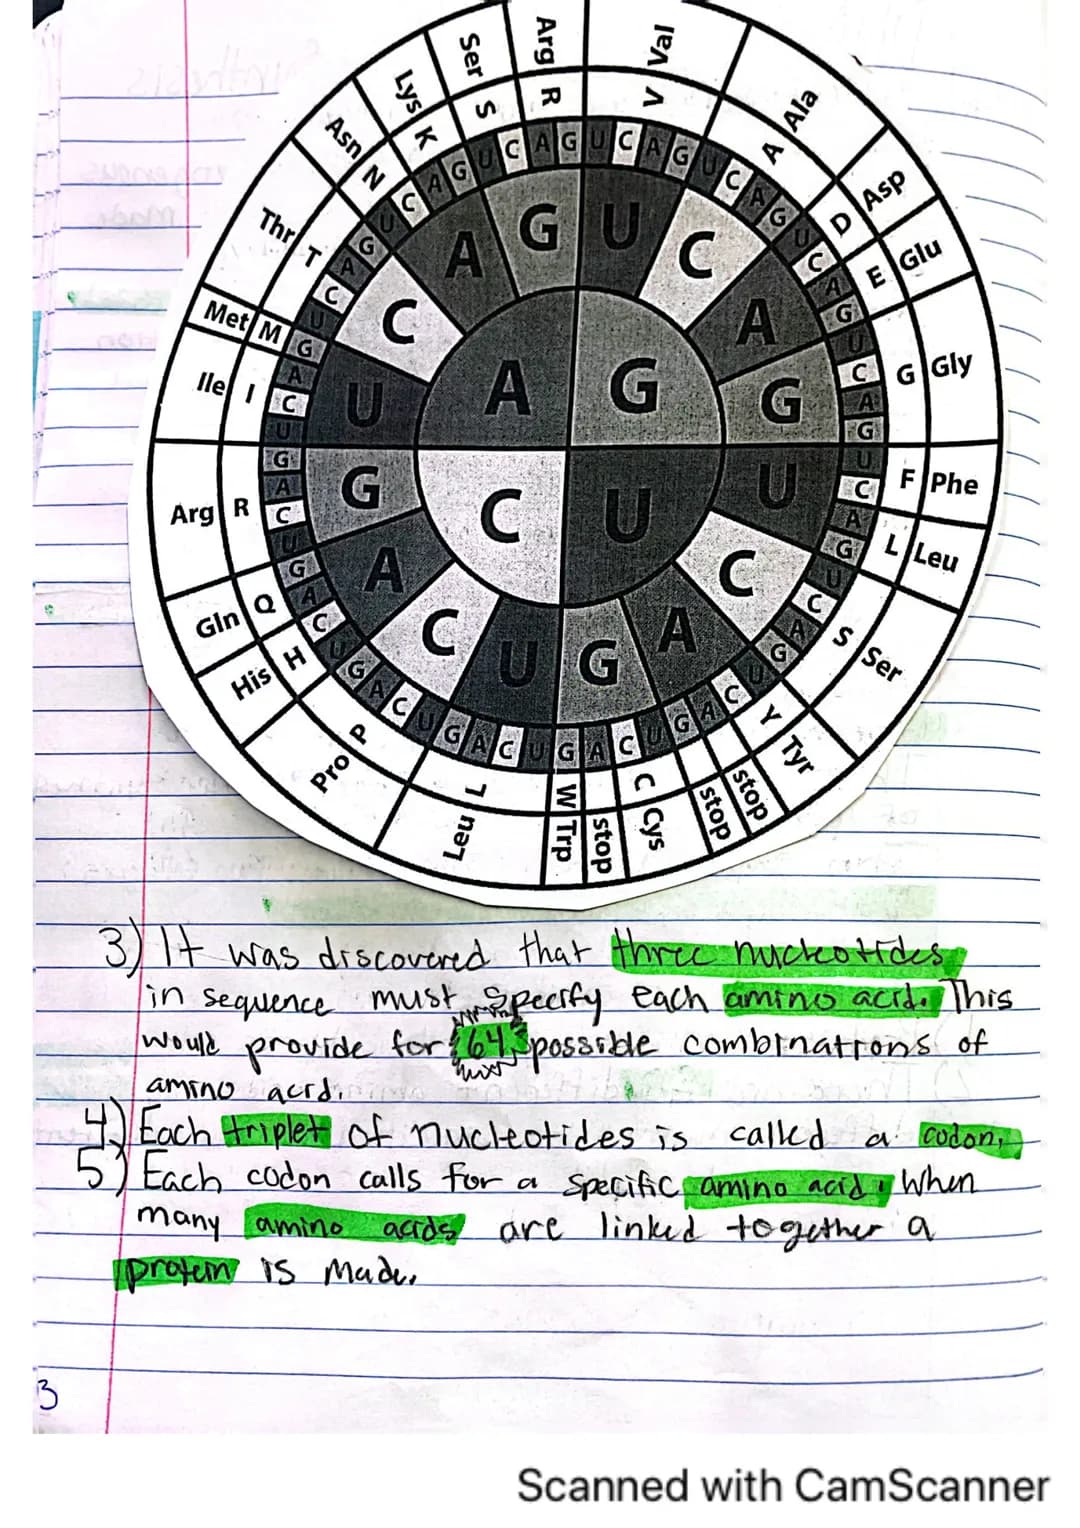 Ser Arg Val
S R V
Lys K Ala A
Asn N Asp D
Thr T Glu E
Met M Gly G
Ile I
A G U C A G U C A G
C A G
U A G G
Arg R G C U U F Phe
L Leu
A C
Gln Q C U G A S Ser
His H
Pro P Y Tyr
Leu L W Trp stop C Cys stop stop
3) It was discovered that three nucleotides
in sequence must specify each amino acid. This
would provide for 64 possible combinations of
amino acid.
4) Each triplet of nucleotides is called a codon.
5) Each codon calls for a specific amino acid. When
many amino acids are linked together a
protein is made.
3
Scanned with CamScanner